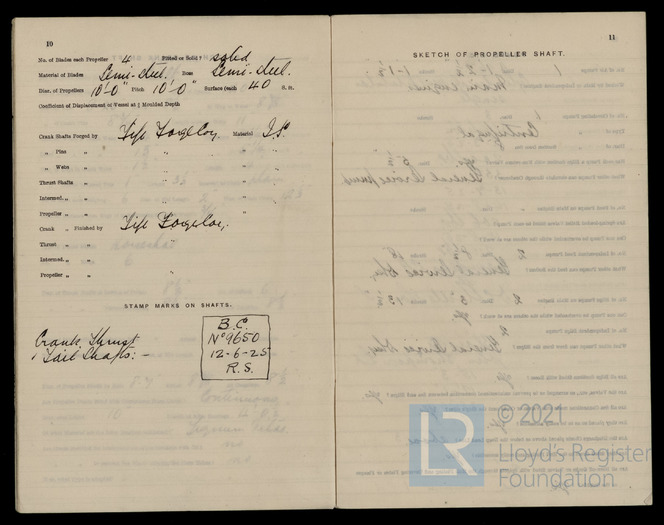 10
No. of Blades each Propeller 4 Fitted or Solid? solid
Material of Blades Semi-steel. Boss Semi-steel.
Diar. of Propellers 10'-0" Pitch 10'-0" Surface (each 40 S. ft.
Coefficient of Displacement of Vessel at ½ Moulded Depth
Crank Shafts Forged by Fife Forge Coy. Material I.S.
„ Pins „ „ „
„ Webs „ „ „
Thrust Shafts „ „ „
Intermed. „ „ „
Propeller „ „ „
Crank „ Finished by Fife Forge Coy.
Thrust „ „ „
Intermed. „ „
Propeller „ „ „
STAMP MARKS ON SHAFTS.
Crank, Thrust
& Tail Shafts: -
B.C.
No 9650
12-6-25
R.S.
11
SKETCH OF PROPELLER SHAFT.
LR
© 2021
Lloyd's Register
Foundation